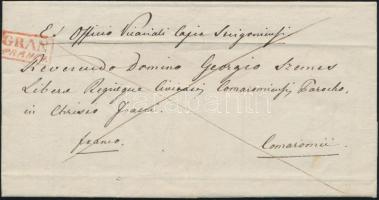 GRAN
FRANCO.
Ex Officio Vicariali Capis Strigoniensis
Reverendo Domino Georgio Szemes
Libera Regiaeque Civitatis Comaromiensis Parocho,
in Christo Fratri
franco.
Comaromii.